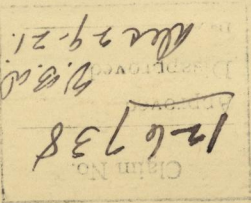 Claim No.
126738
Approved
Disapproved
Dec 29-21.